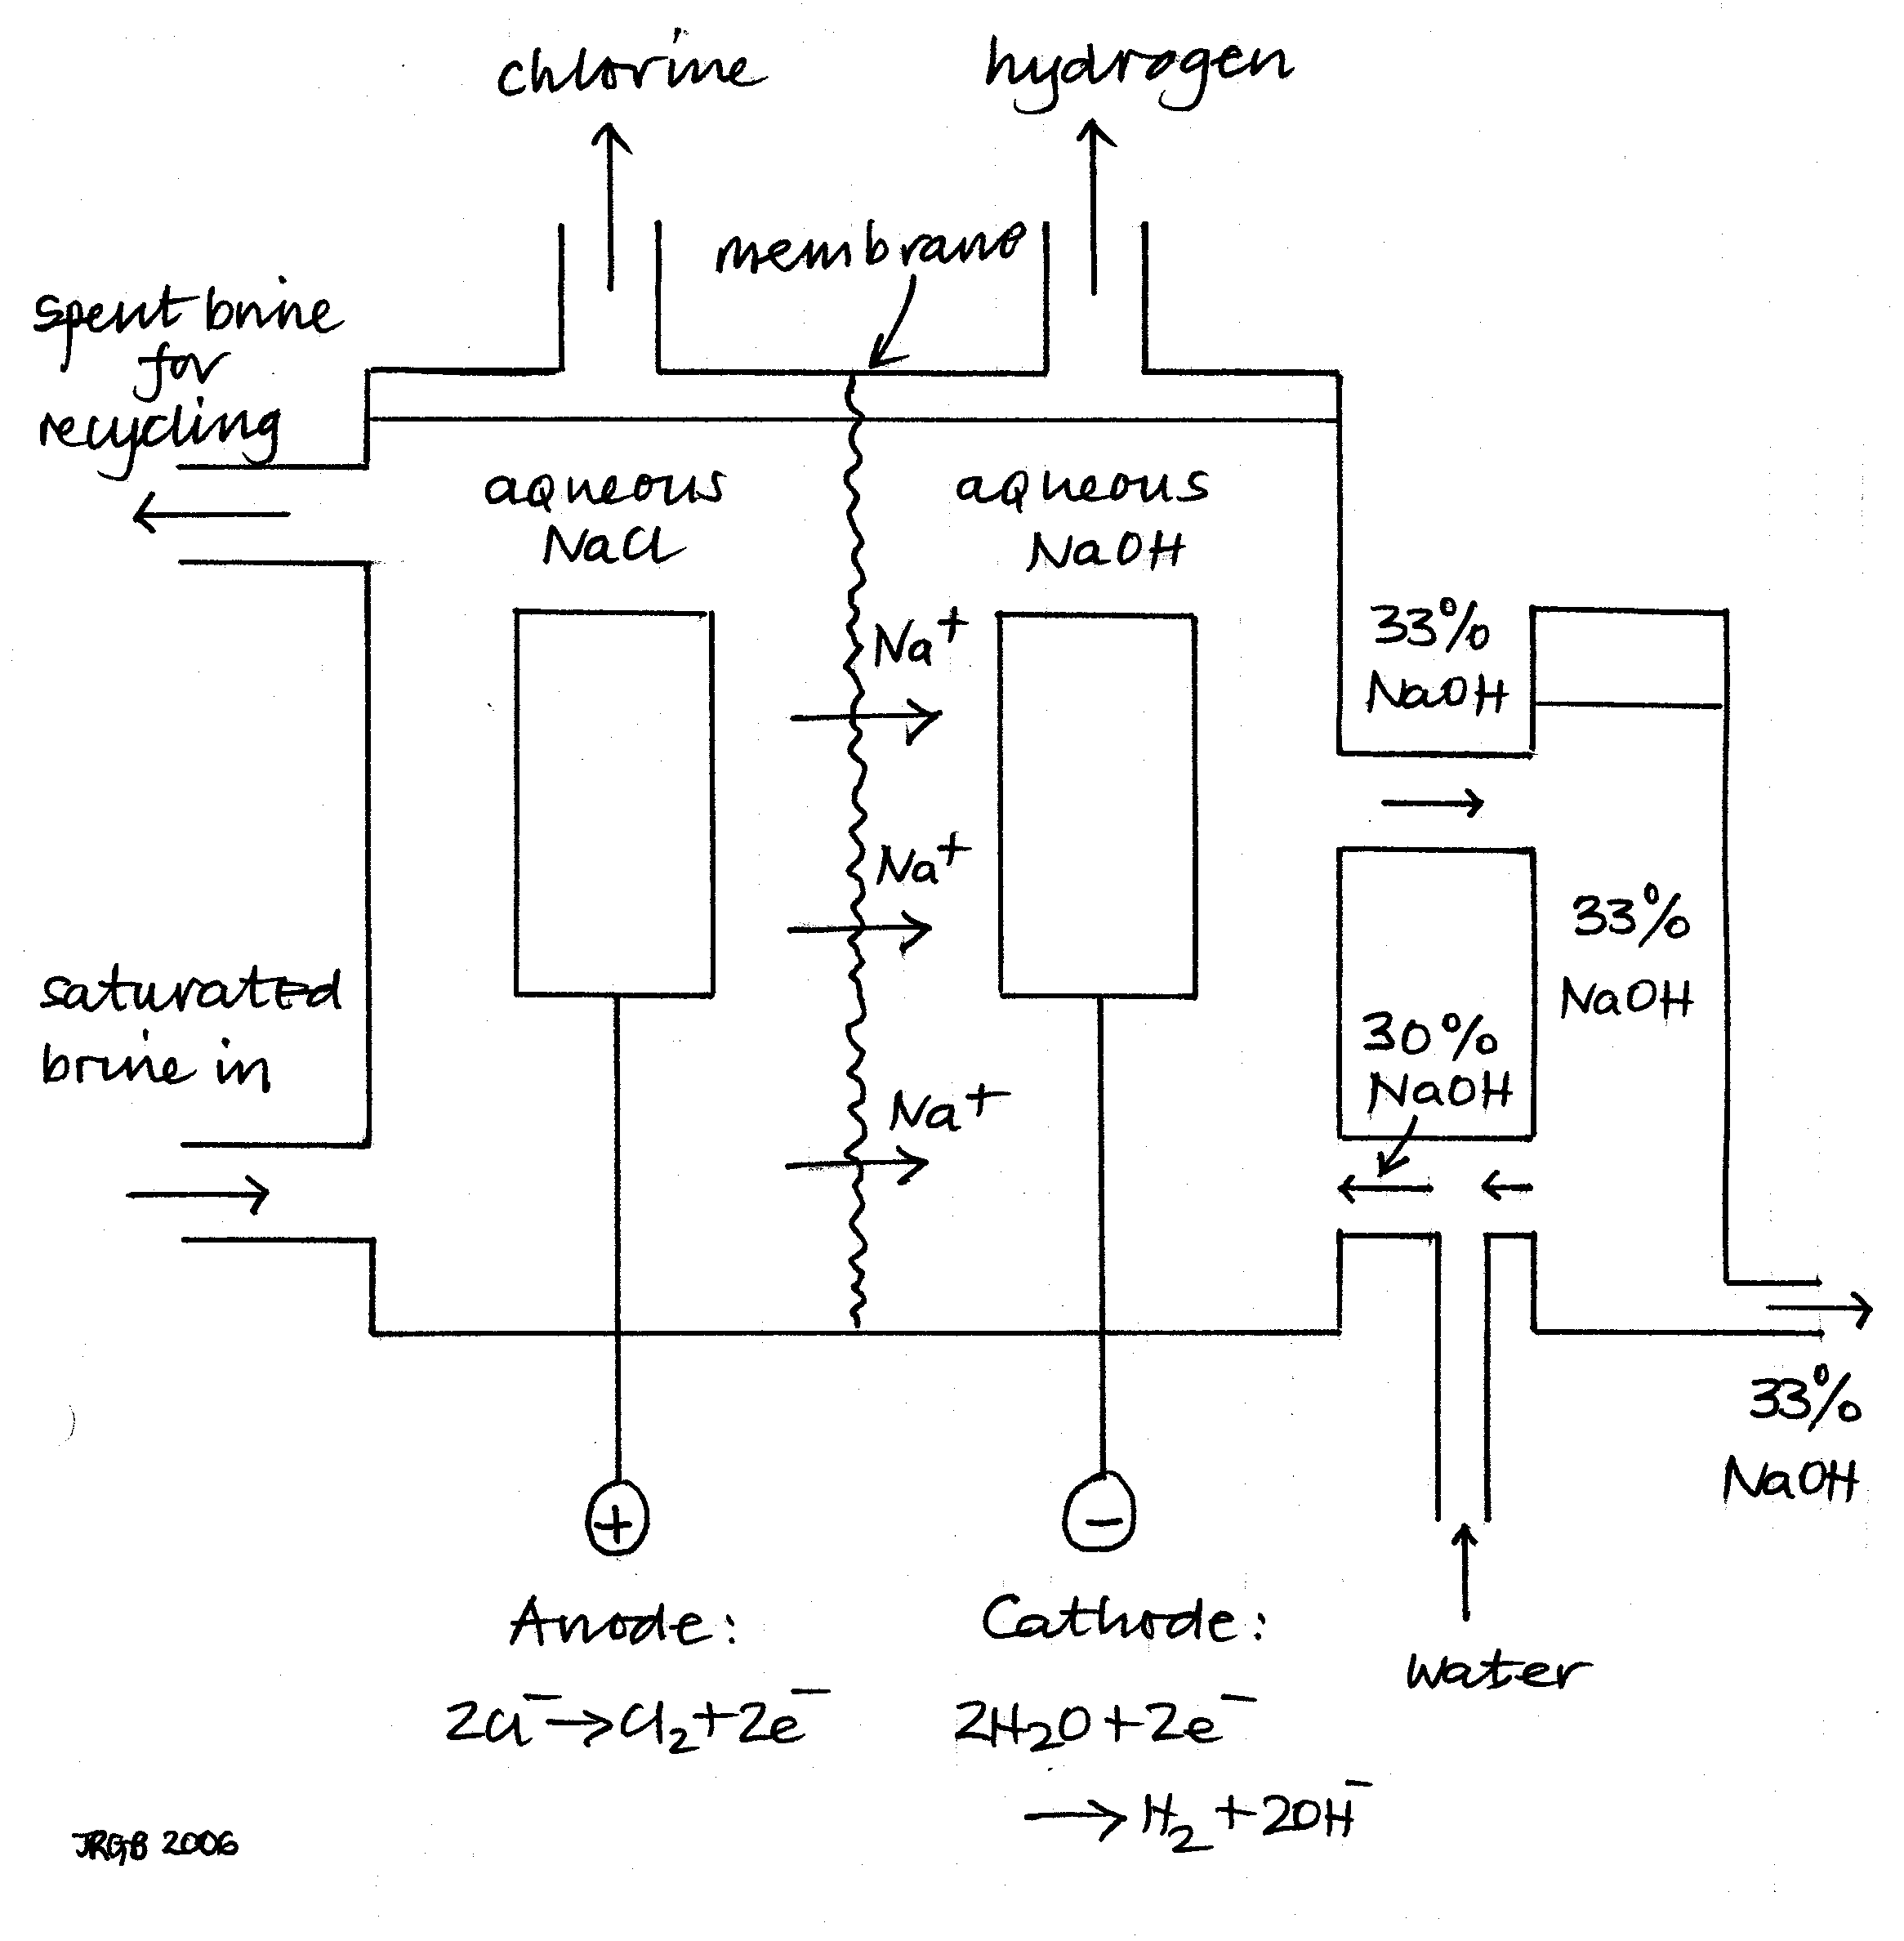 chlorine
hydrogen
membrane
spent brine
for
recycling
aqueous
NaCl
aqueous
NaOH
Na⁺
Na⁺
Na⁺
33%
NaOH
33%
NaOH
30%
NaOH
saturated
brine in
33%
NaOH
+
−
Anode:
2Cl⁻→Cl₂+2e⁻
Cathode:
2H₂O+2e⁻
→H₂+2OH⁻
water
JRGB 2006